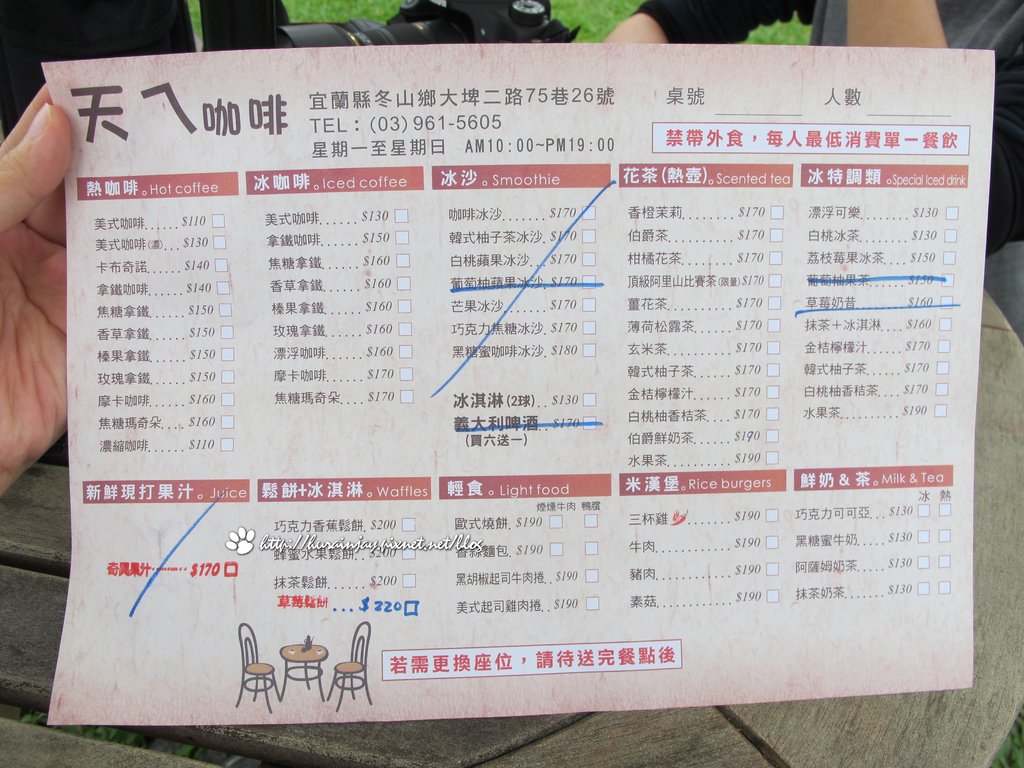 天ㄟ咖啡
宜蘭縣冬山鄉大埤二路75巷26號
TEL：(03)961-5605
星期一至星期日 AM10:00~PM19:00
桌號 人數
禁帶外食，每人最低消費單一餐飲
熱咖啡。Hot coffee
美式咖啡......$110
美式咖啡(濃)...$130
卡布奇諾......$140
拿鐵咖啡......$140
焦糖拿鐵......$150
香草拿鐵......$150
榛果拿鐵......$150
玫瑰拿鐵......$150
摩卡咖啡......$160
焦糖瑪奇朵...$160
濃縮咖啡......$110
冰咖啡。Iced coffee
美式咖啡......$130
拿鐵咖啡......$150
焦糖拿鐵......$160
香草拿鐵......$160
榛果拿鐵......$160
玫瑰拿鐵......$160
漂浮咖啡......$160
摩卡咖啡......$170
焦糖瑪奇朵....$170
冰沙。Smoothie
咖啡冰沙........$170
韓式柚子茶冰沙.$170
白桃蘋果冰沙..$170
葡萄柚蘋果冰沙.$170
芒果冰沙........$170
巧克力焦糖冰沙.$170
黑糖蜜咖啡冰沙.$180
冰淇淋(2球)..$130
義大利啤酒..$170
(買六送一)
花茶(熱壺)。Scented tea
香橙茉莉..........$170
伯爵茶............$170
柑橘花茶..........$170
頂級阿里山比賽茶(限量)$170
薑花茶............$170
薄荷松露茶........$170
玄米茶............$170
韓式柚子茶........$170
金桔檸檬汁........$170
白桃柚香桔茶......$170
伯爵鮮奶茶........$190
水果茶............$190
冰特調類。Special Iced drink
漂浮可樂........$130
白桃冰茶........$130
荔枝莓果冰茶...$150
葡萄柚果茶.....$150
草莓奶昔........$160
抹茶＋冰淇淋...$160
金桔檸檬汁.....$170
韓式柚子茶.....$170
白桃柚香桔茶...$170
水果茶..........$190
新鮮現打果汁。Juice
奇異果汁........$170
鬆餅+冰淇淋。Waffles
巧克力香蕉鬆餅.$200
蜂蜜水果鬆餅...$200
抹茶鬆餅......$200
草莓鬆餅...$220
輕食。Light food
煙燻牛肉 鴨腿
歐式燒餅.$190
香蒜麵包..$190
黑胡椒起司牛肉捲.$190
美式起司雞肉捲..$190
米漢堡。Rice burgers
三杯雞..........$190
牛肉............$190
豬肉............$190
素菇............$190
鮮奶 & 茶。Milk & Tea
冰 熱
巧克力可可亞...$130
黑糖蜜牛奶.....$130
阿薩姆奶茶.....$130
抹茶奶茶........$130
若需更換座位，請待送完餐點後